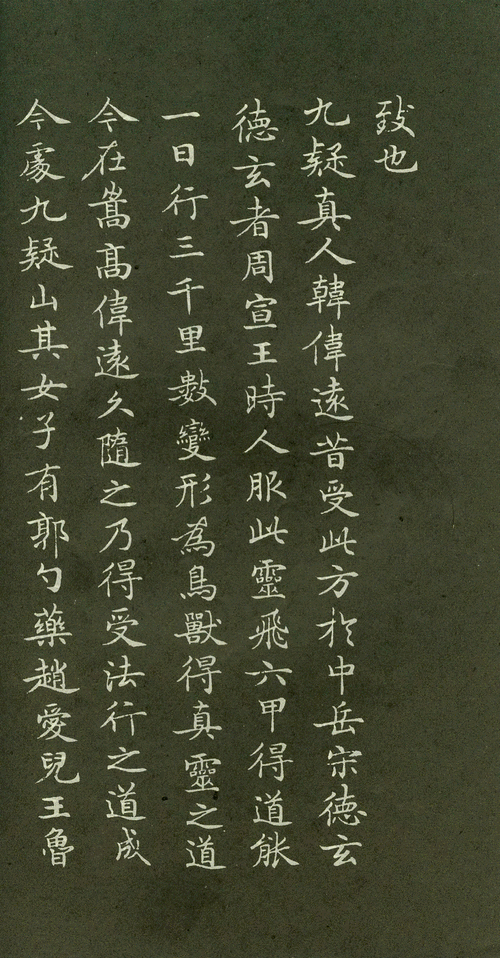 致也
九疑真人韓偉遠昔受此方於中岳宋德玄
德玄者周宣王時人服此靈飛六甲得道能
一日行三千里數變形為鳥獸得真靈之道
今在嵩高偉遠久隨之乃得受法行之道成
今處九疑山其女子有郭勺藥趙愛兒王魯